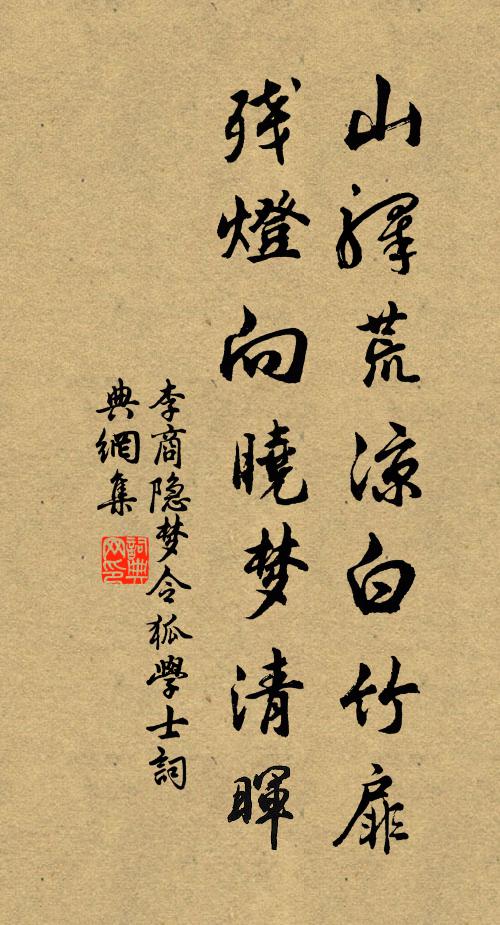 山驛荒凉白竹扉
残燈向曉梦清暉
李商隐梦令狐學士詞
典網集
詞典
网印